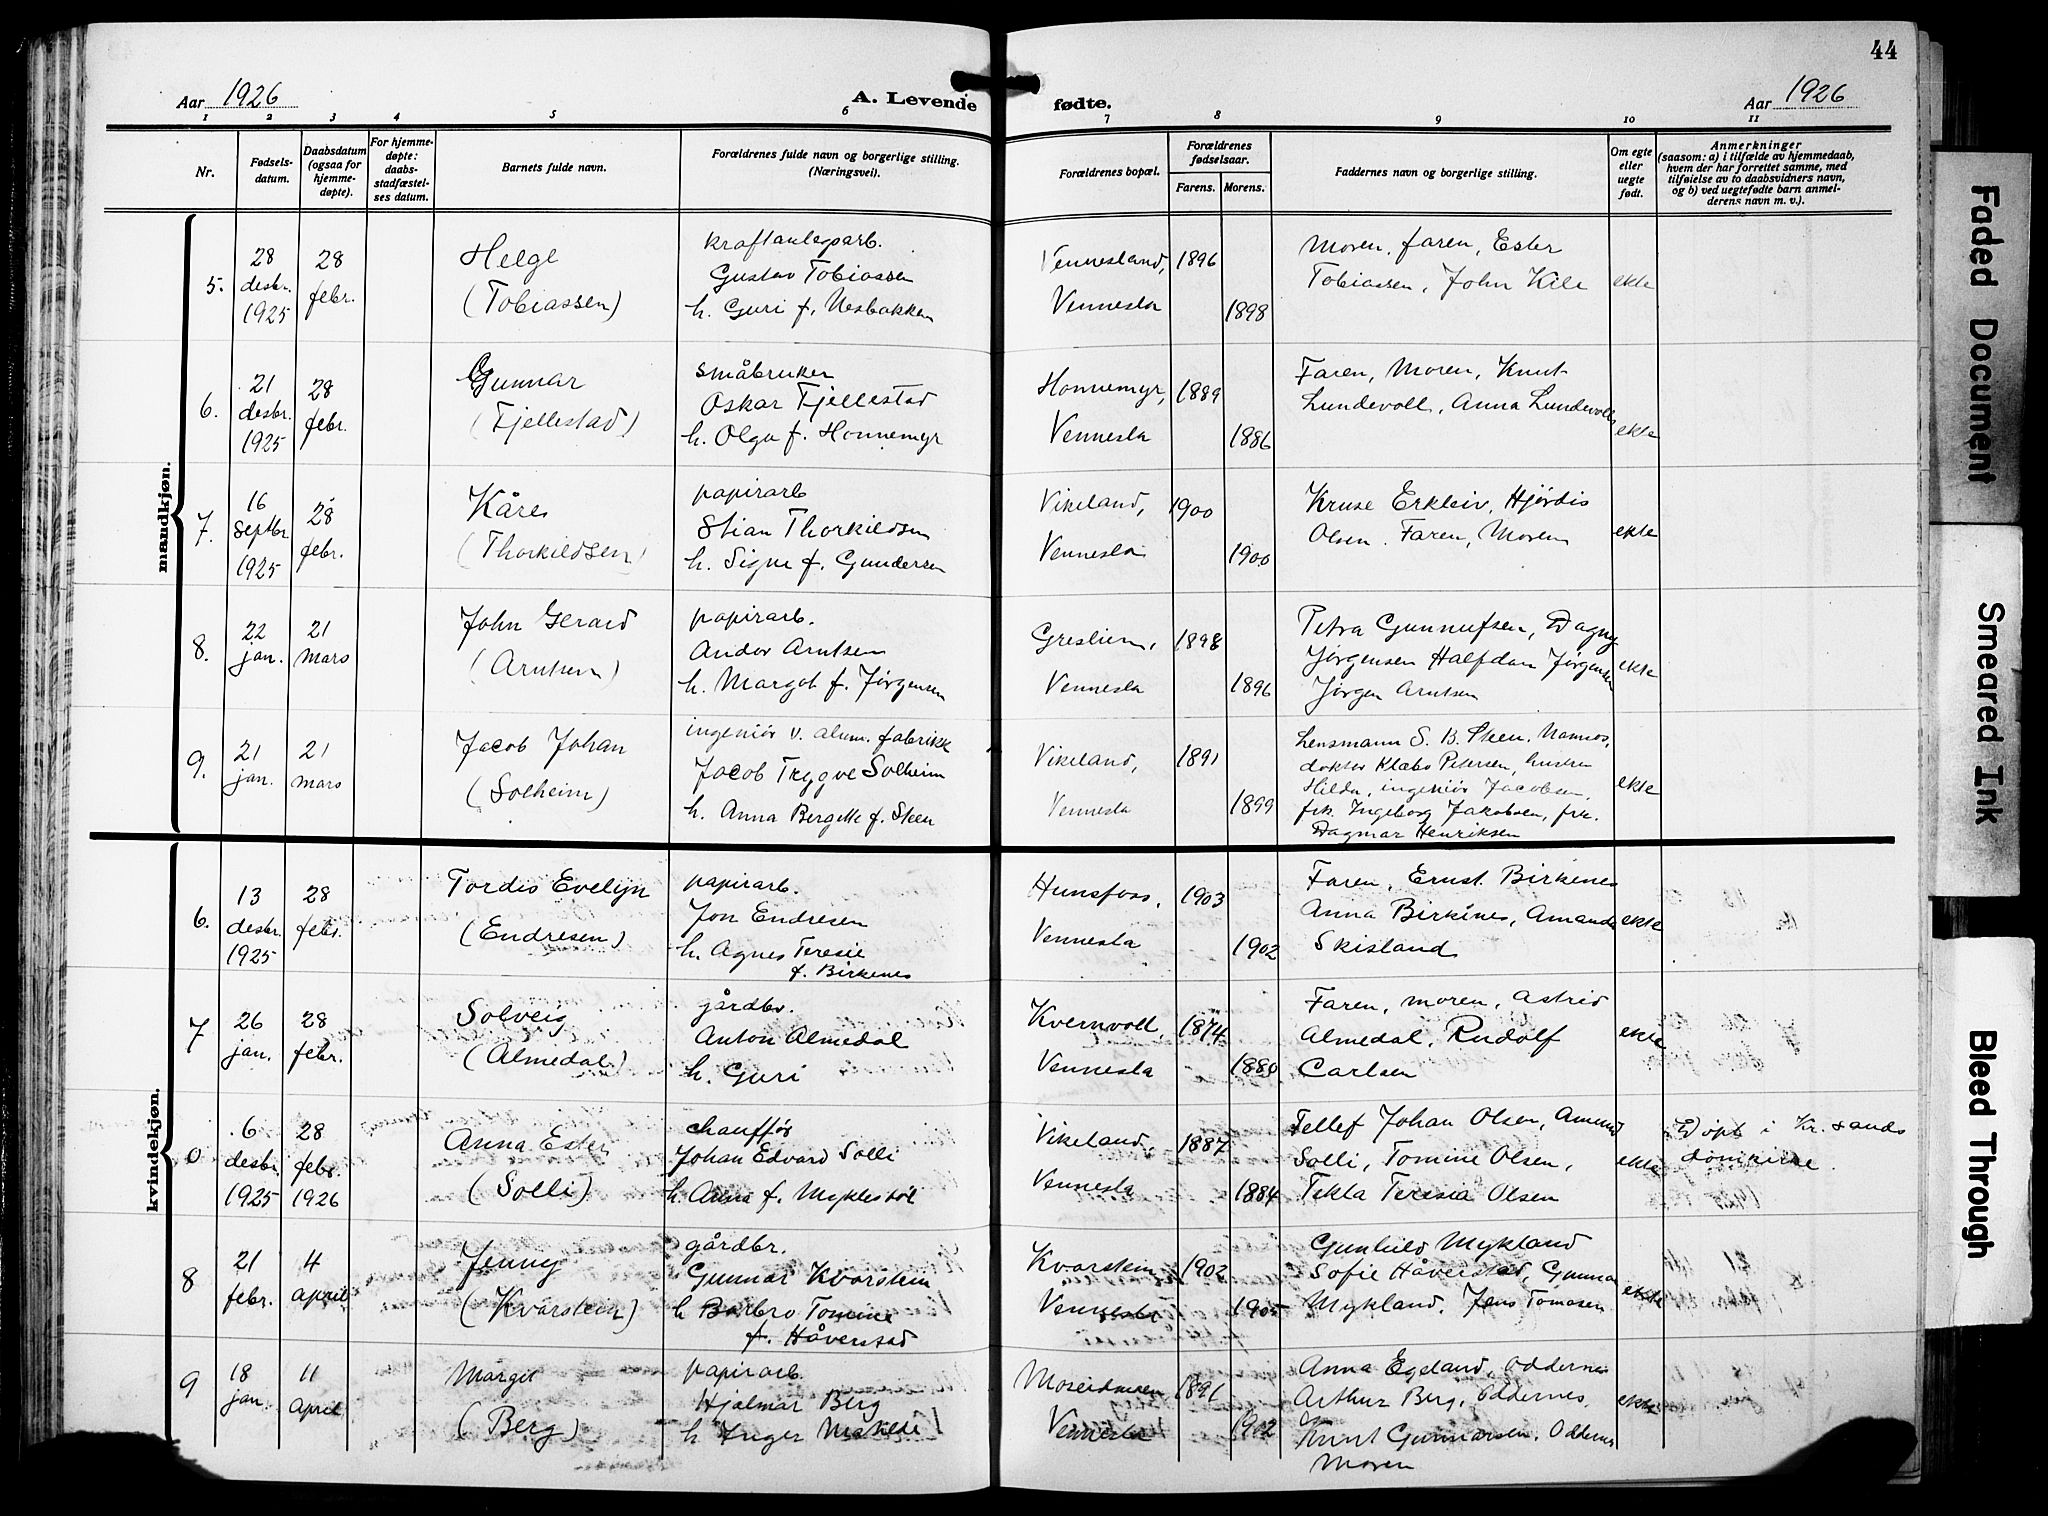 44
Aar 1926
A. Levende fødte.
Aar 1926
1 2 3 4 5 6 7 8 9 10 11
Nr.
Fødsels-
datum.
Daabsdatum
(ogsaa for
hjemme-
døpte).
For hjemme-
døpte:
daabs-
stadfæstel-
ses datum.
Barnets fulde navn.
Forældrenes fulde navn og borgerlige stilling.
(Næringsvei).
Forældrenes bopæl.
Forældrenes
fødselsaar.
Farens. Morens.
Faddernes navn og borgerlige stilling.
Om egte
eller
uegte
født.
Anmerkninger
(saasom: a) i tilfælde av hjemmedaab,
hvem der har forrettet samme, med
tilføielse av to daabsvidners navn,
og b) ved uegtefødte barn anmel-
derens navn m. v.).
mandkjøn.
5.
28
desbr.
1925
28
febr.
Helge
(Tobiassen)
kraftanlegsarb.
Gustav Tobiassen
h. Guri f. Nesbakken
Vennesland,
Vennesla
1896
1898
Moren, faren, Ester
Tobiassen, John Kile
ekte
6.
21
desbr.
1925
28
febr.
Gunnar
(Fjellestad)
småbruker
Oskar Fjellestad
h. Olga f. Honnemyr
Honnemyr,
Vennesla
1889
1886
Faren, Moren, Knut
Lundevoll, Anna Lundevoll
ekte
7.
16
septbr.
1925
28
febr.
Kåre
(Thorkildsen)
papirarb
Stian Thorkildsen
h. Signe f. Gundersen
Vikeland,
Vennesla
1900
1900
Kruse Erkleiv, Hjördis
Olsen. Faren, Moren
ekte
8.
22
jan.
21
mars
John Gerard
(Arntsen)
papirarb.
Andor Arntsen
h. Margot f. Jörgensen
Greslien,
Vennesla
1898
1896
Petra Gunnufsen, Dagny
Jörgensen Halfdan Jörgensen
Jörgen Arntsen
ekte
9.
21
jan.
21
mars
Jacob Johan
(Solheim)
ingeniör v. alum. fabrikk
Jacob Trygve Solheim
h. Anna Bergette f. Steen
Vikeland,
Vennesla
1891
1899
Lensmann S. B. Steen,
doktor Klæbo Petersen, hustru
Hilda, ingeniör Jacobsen,
frk. Ingeborg Jakobsen, frk.
Dagmar Henriksen
ekte
kvindekjøn.
6.
13
desbr.
1925
28
febr.
Tordis Evelyn
(Endresen)
papirarb.
Jon Endresen
h. Agnes Teresie
f. Birkenes
Hunsfoss,
Vennesla
1903
1902
Faren, Ernst Birkenes
Anna Birkenes, Amanda
Skisland
ekte
7
26
jan.
28
febr.
Solveig
(Almedal)
gårdbr.
Anton Almedal
h. Guri
Kvernvoll,
Vennesla
1874
1880
Faren, moren, Astrid
Almedal, Rudolf
Carlsen
ekte
0
6
desbr.
1925
28
febr.
1926
Anna Ester
(Solli)
chauffør
Johan Edvard Solli
h. Anna f. Myklestöl
Vikeland,
Vennesla
1887
1884
Tellef Johan Olsen, Amund
Solli, Tomine Olsen,
Tekla Teresia Olsen
ekte
Döpt i Kr.sands
domkirke.
8
21
febr.
4
april
Jenny
(Kvarstein)
gårdbr.
Gunnar Kvarstein
h Barbro Tomine
f. Håverstad
Kvarstein
Vennesla
1902
1905
Gunhild Mykland
Sofie Håverstad, Gunnar
Mykland, Jens Tomasen
ekte
9
18
jan.
11
april
Margit
(Berg)
papirarb.
Hjalmar Berg
h Inger Matilde
Moseidmoen
Vennesla
1896
1902
Anna Egeland, Oddernes
Arthur Berg, Oddernes,
Knut Gunnarsen, Oddernes
Moren
ekte
Faded Document
Smeared Ink
Bleed Through